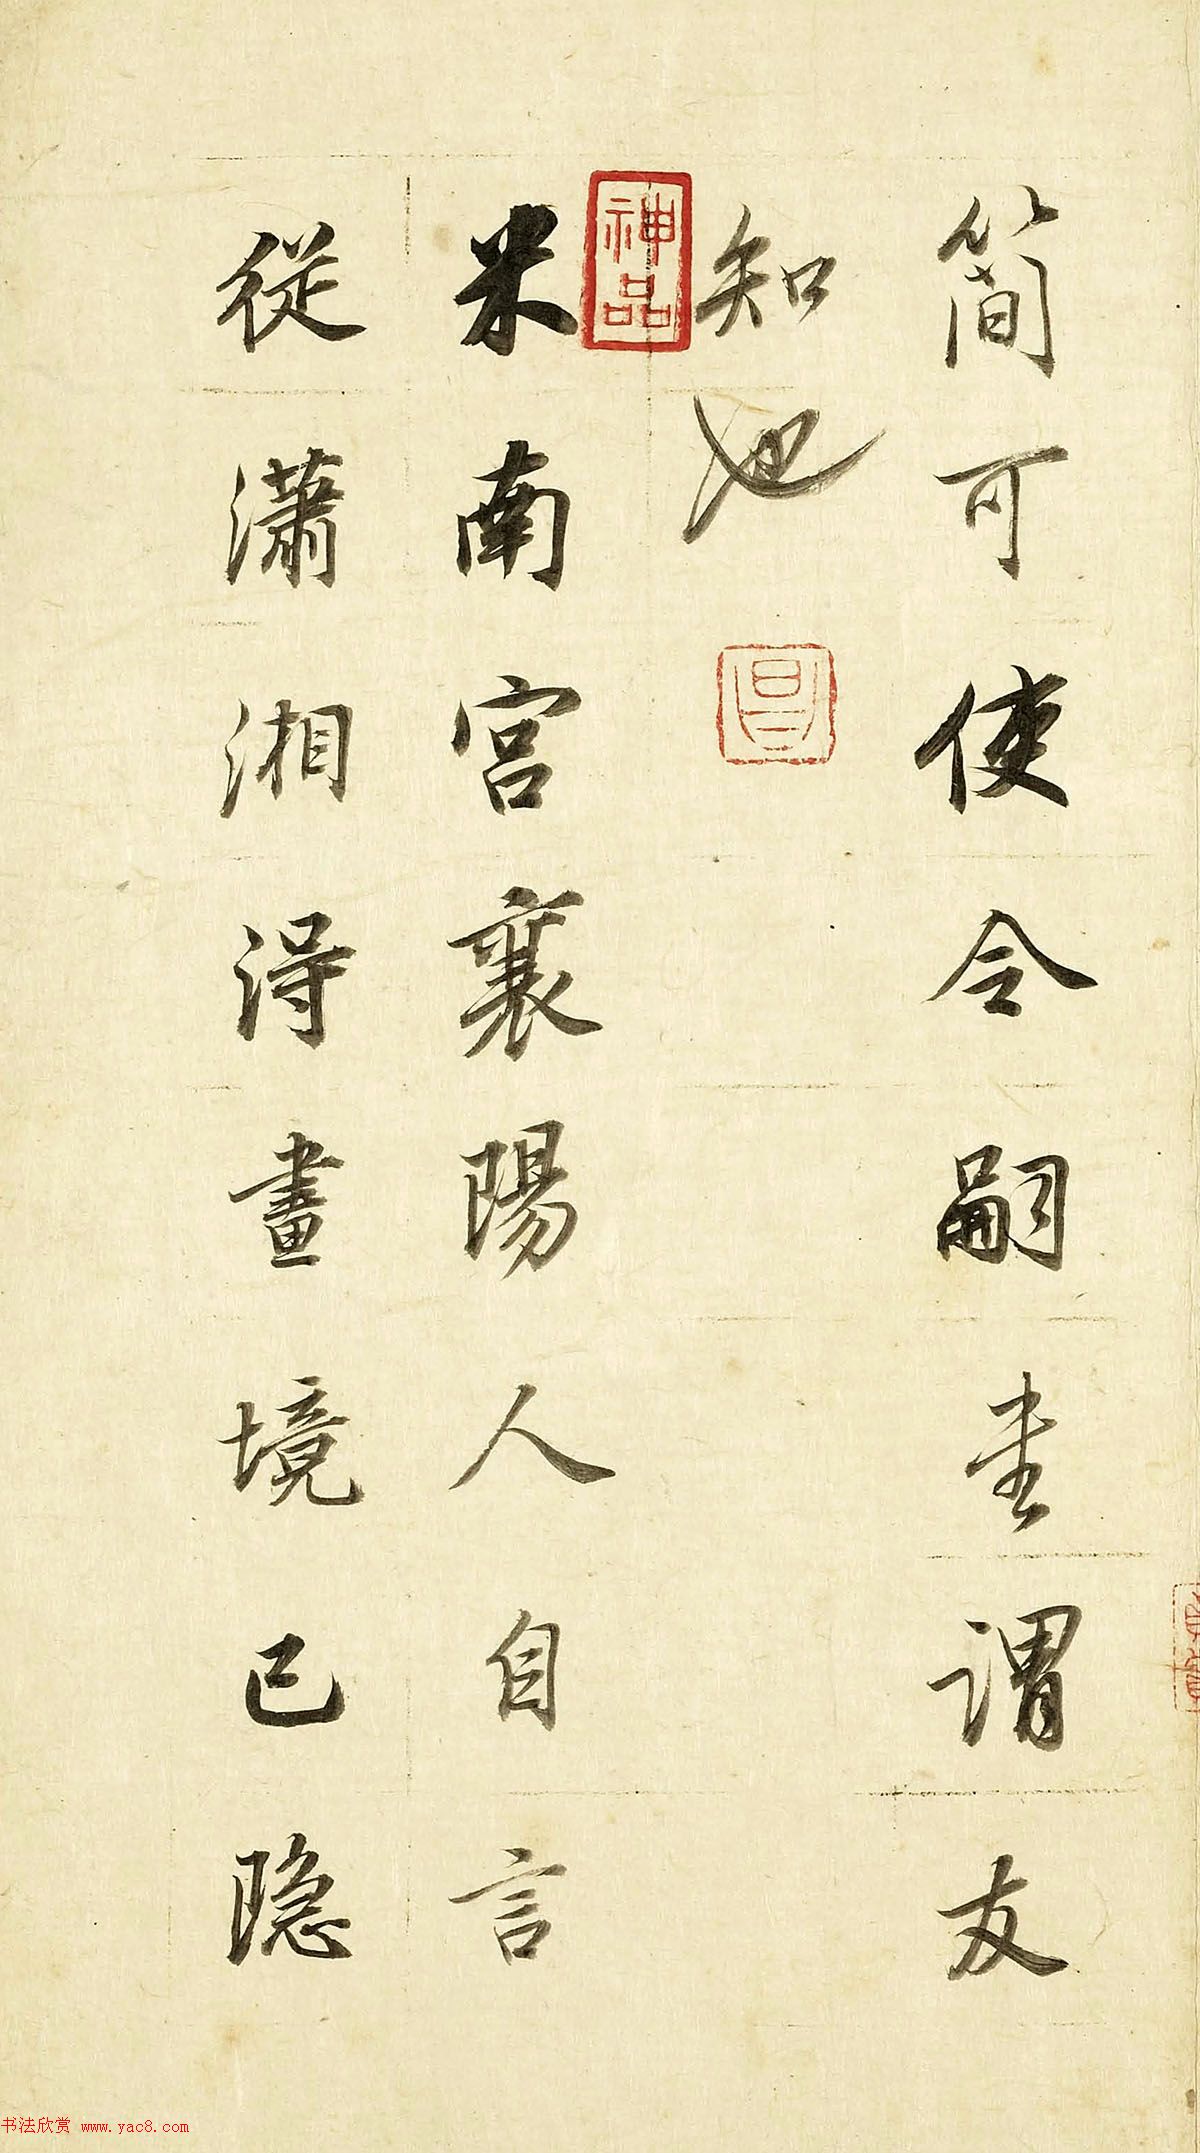 简可使令嗣圭谓友
知也
米南宫襄陽人自言
從瀟湘得畫境已隐
神品
書法欣赏 www.yac8.com